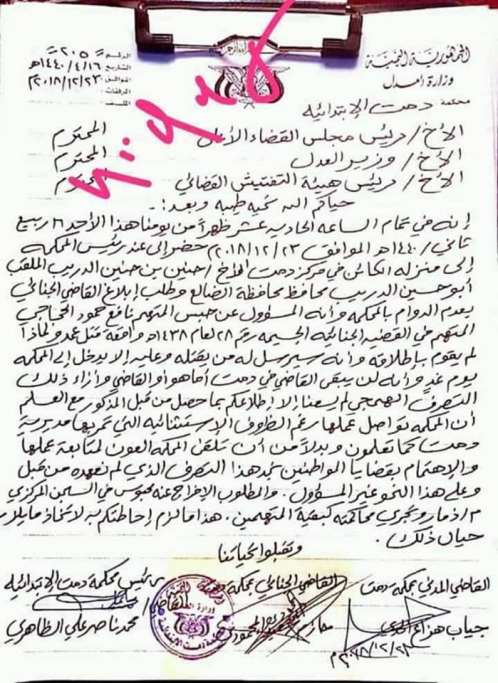 الجمهورية اليمنية
وزارة العدل
محكمة دمت الإبتدائيه
الرقم = ٢٠٥ =
التاريخ ١٤٤٠/٤/١٦هـ
الموافق ٢٠١٨/١٢/٢٣م
المرفقات
الملف
الأخ / رئيس مجلس القضاء الأعلى المحترم
الأخ / وزير العدل المحترم
الأخ / رئيس هيئة التفتيش القضائي
حياكم الله تحيه طيبه وبعد :.
إنه في تمام الساعه الحاديه عشر ظهراً من يومنا هذا الأحد ١٦ ربيع
ثاني / ١٤٤٠هـ الموافق ٢٠١٨/١٢/٢٣م حضر إلى عند رئيس المحكمه
إلى منزله الكائن في مركز دمت الأخ / حنين بن حنين الدريب الملقب
أبو حسين الدريب محافظ محافظة الضالع وطلب إبلاغ القاضي الجنائي
بعدم الدوام بالمحكمه وأنه المسؤول عن حبس المتهم نافع حمود الحجاجي
المتهم في القضيه الجنائيه الجسيمه رقم ٢٨ لعام ١٤٣٨هـ واقعة قتل عمد ولماذا
لم يقوم بإطلاقه وأنه سيرسل له من يقتله وعليه إلا يدخل إلى المحكمه
يوم غدٍ وأنه لن يبقى القاضي في دمت أما هو أو القاضي وأزاء ذلك
التصرف الهمجي لم يسعنا إلا إطلاعكم بما حصل من قبل المذكور مع العلم
أن المحكمه تواصل عملها رغم الظروف الإستثنائيه التي تمر بها مديرية
دمت كما تعلمون وبدلاً من أن تلقى المحكمه العون لمتابعة عملها
والإهتمام بقضايا المواطنين نجد هذا التصرف الذي لم نعهده من قبل
وعلى هذا النحو غير المسؤول . والمطلوب الإفراج عنه محبوس في السجن المركزي
م/ ذمار وتجري محاكمته كبقية المتهمين . هذا ما لزم إحاطتكم به لاتخاذ ما يلزم
حيال ذلك .
وتقبلوا تحياتنا
القاضي المدني بمحكمة دمت القاضي الجنائي بمحكمة رئيس محكمة دمت الإبتدائيه
جياب هزاع القاضي / محمد ناصر علي الظاهري